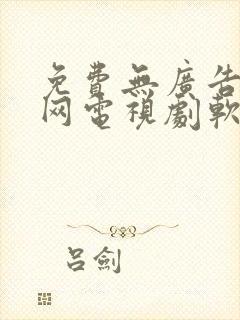 免費無廣告
网電視劇軟
呂劍